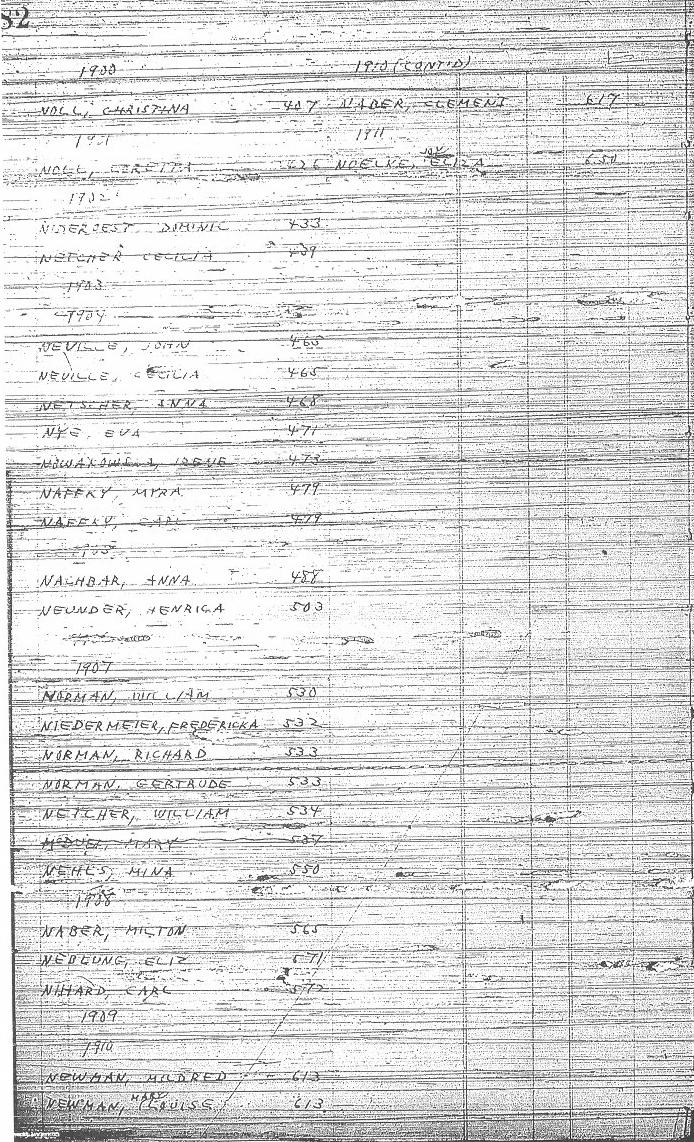 82
1900
NOLL, CHRISTINA 407
1901
NOLL, LORETTA 426
1902
DOMINIC 433
NETCHER CECILIA 439
1903
1904
NEVILLE, JOHN 465
NEVILLE, CECILIA 465
NETSCHER, ANNA 468
NYE, EVA 471
NOWAKOWSKI, IRENE 473
NAFFKY, MYRA 479
NAFFKY, CARL 479
1905
NACHBAR, ANNA 488
NEUNDER, HENRICA 503
1907
NORMAN, WILLIAM 530
NIEDERMEIER, FREDERICKA 532
NORMAN, RICHARD 533
NORMAN, GERTRUDE 533
NETCHER, WILLIAM 534
MARY 537
NEHLS, MINA 550
1908
NABER, MILTON 565
NEDLUNG, ELIZ 571
NIHARD, CARL 572
1909
1910
NEWMAN, MILDRED 613
NEWMAN, MARY LOUISE 613
1910 (CONT'D)
NABER, CLEMENT 617
1911
NOELKE, ELIZA 650